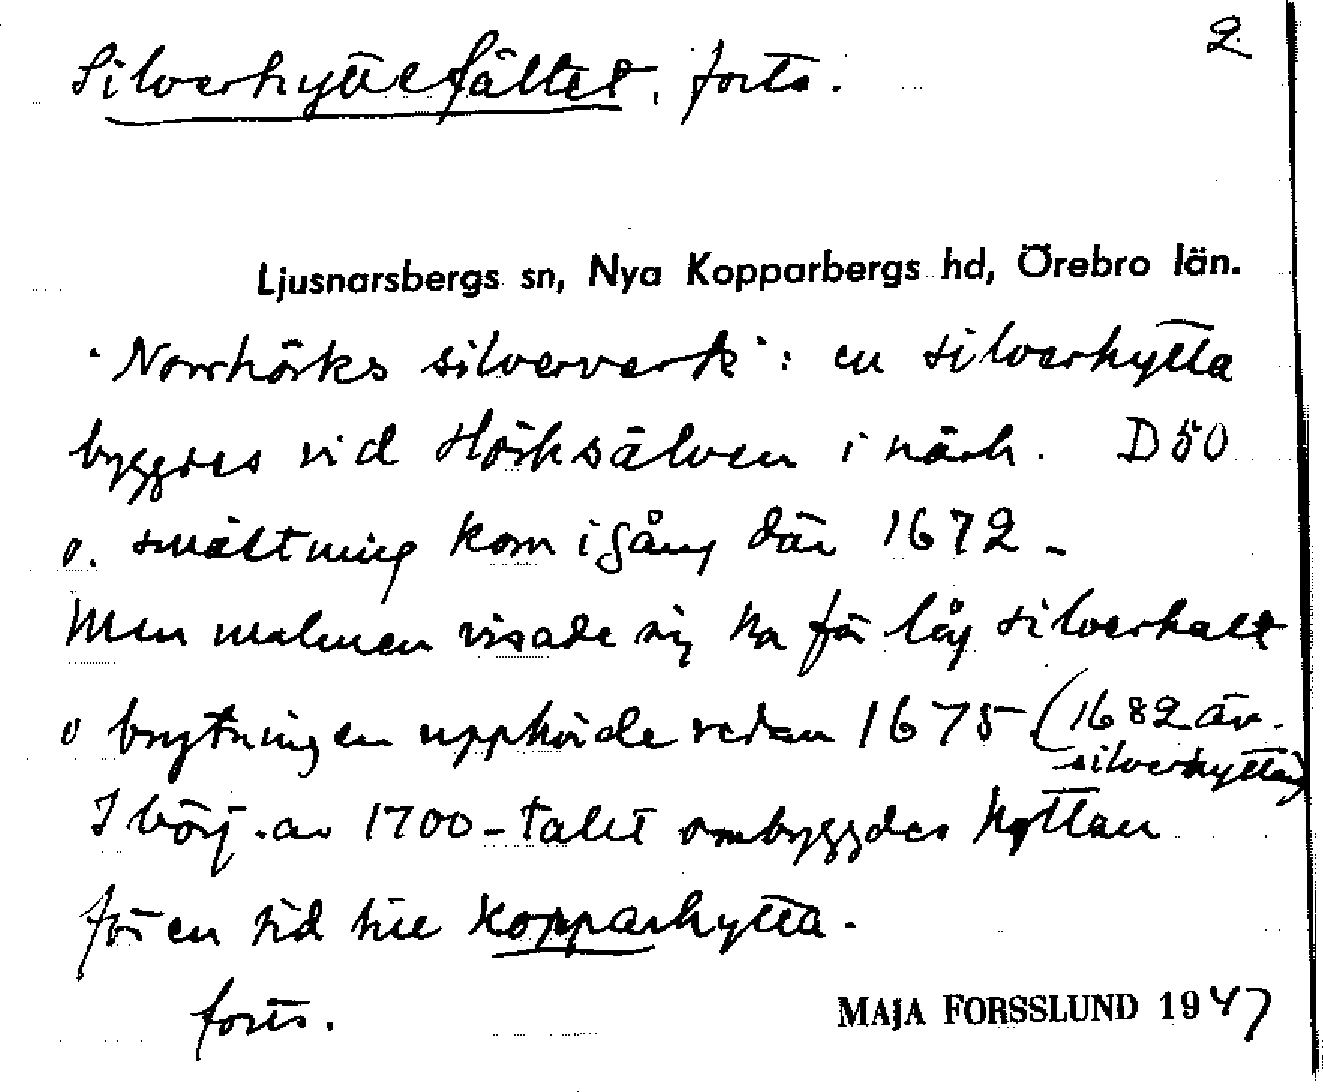 2
Silverhyttefältet, forts.
Ljusnarsbergs sn, Nya Kopparbergs hd, Örebro län.
"Norrhörks silververk": en silverhytta
byggdes vid Hörksälven i närh. D50
o. smältning kom igång där 1672 -
Men malmen visade sig ha för låg silverhalt
o brytningen upphörde redan 1675 (1682 äv.
silverhyttan)
I börj. av 1700-talet ombyggdes hyttan
för en tid till kopparhytta.
forts.
MAJA FORSSLUND 1947